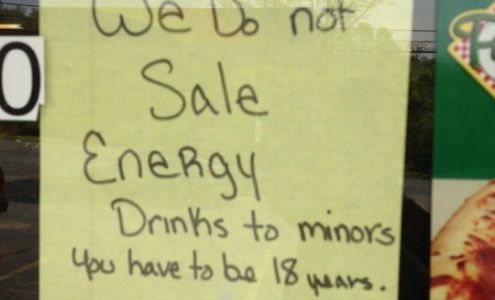 We Do not
Sale
Energy
Drinks to minors
you have to be 18 years.
0